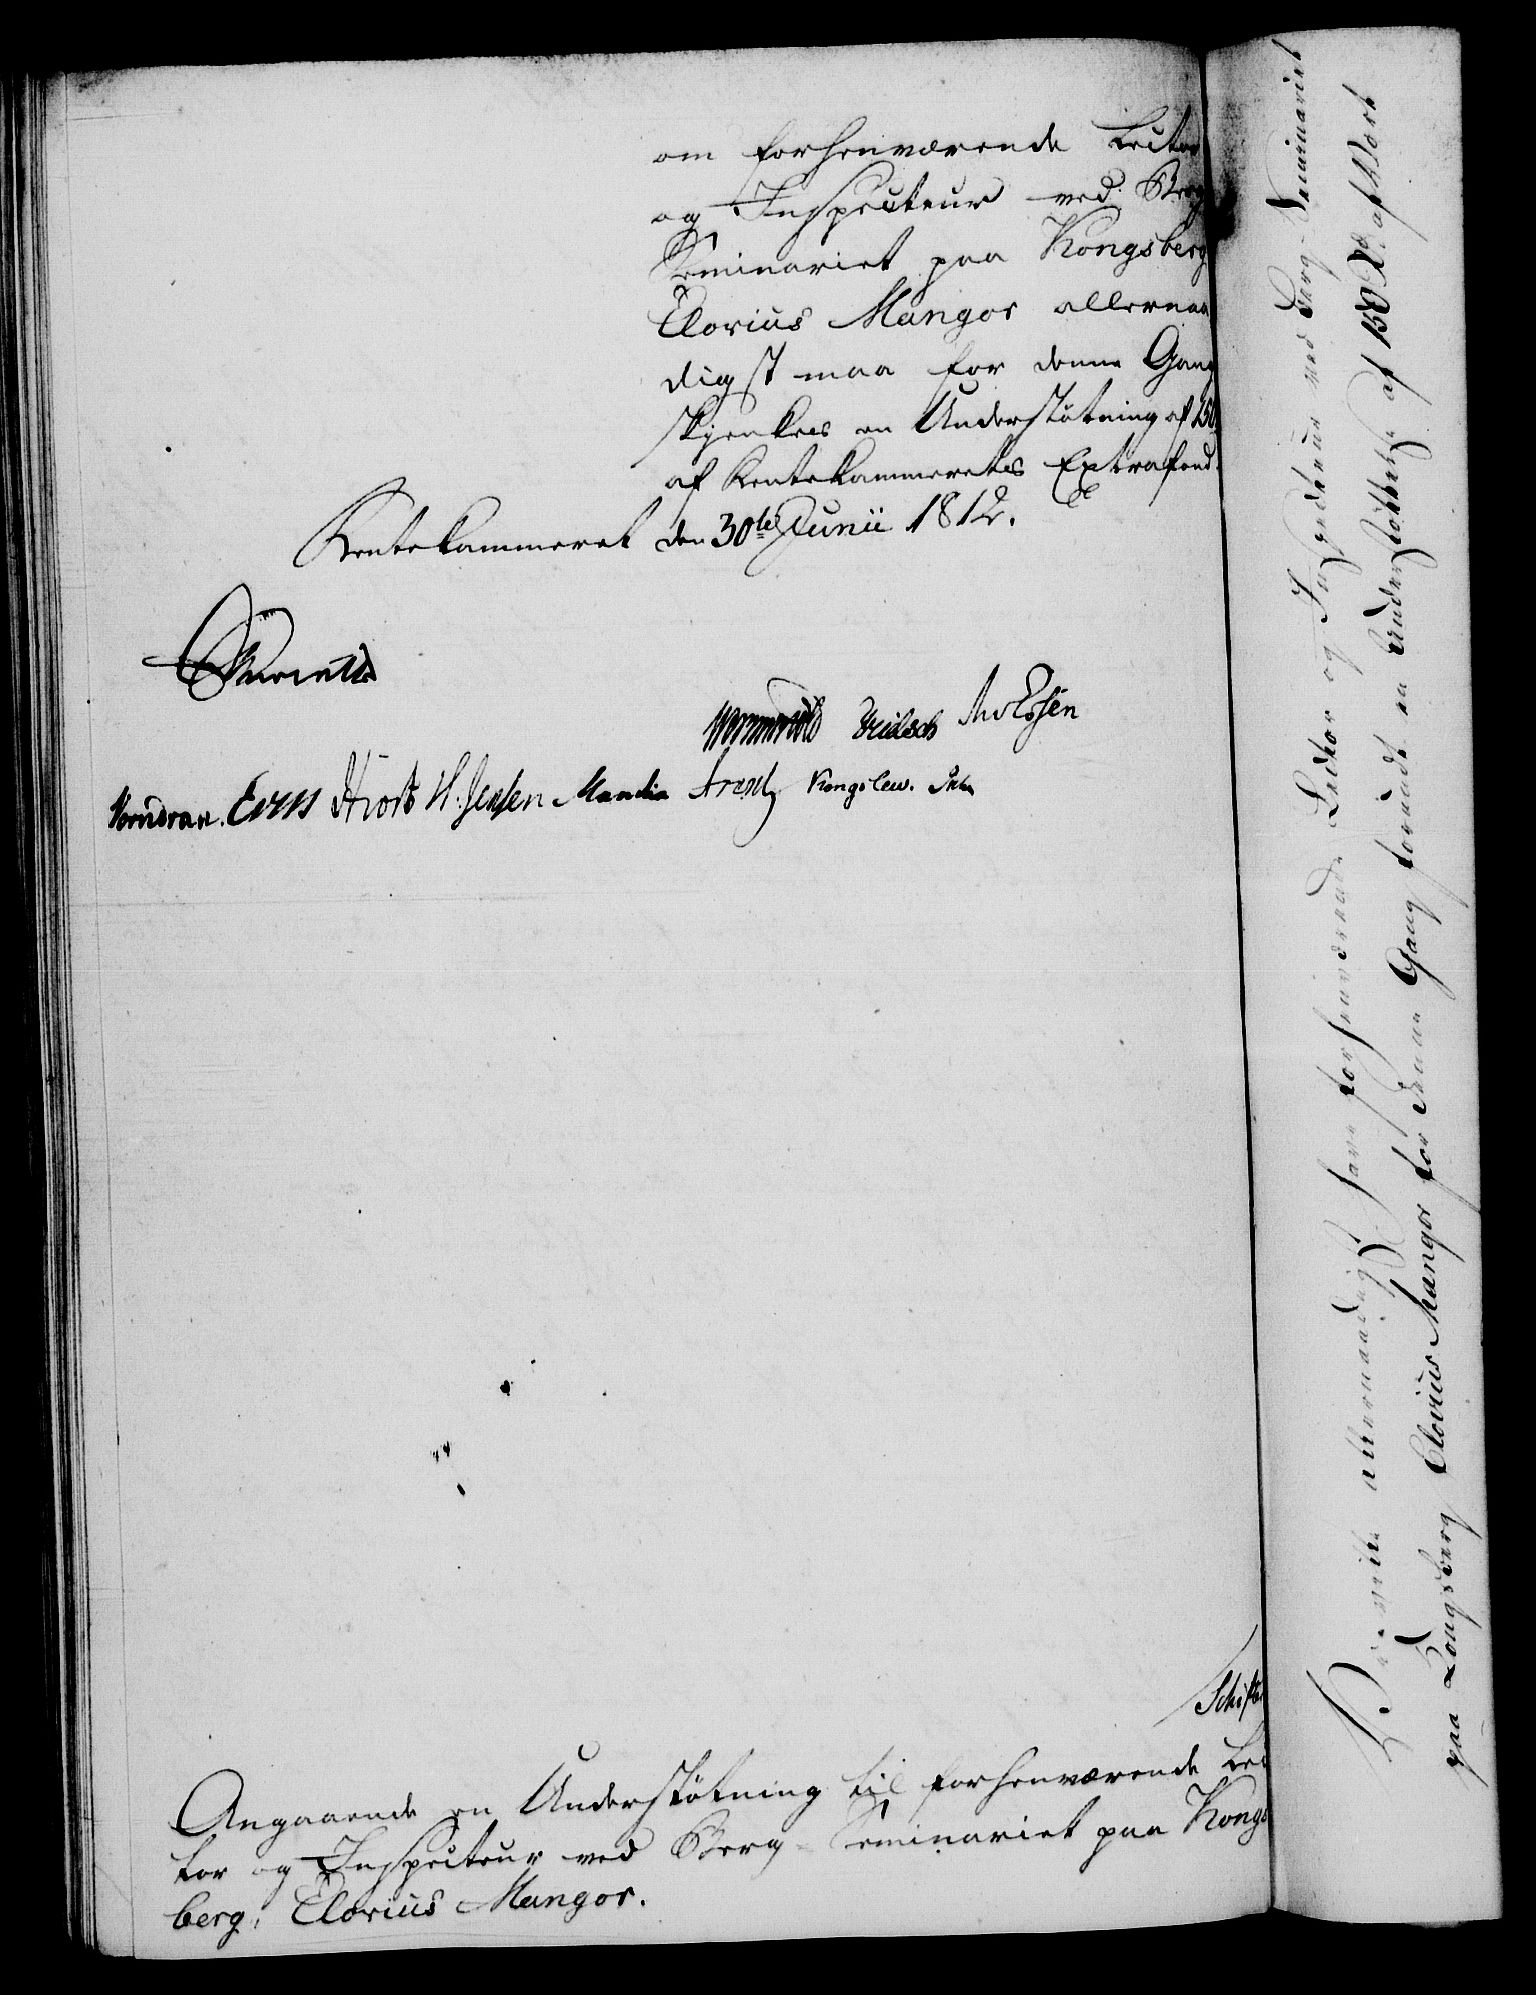 om forhenværende Lector
og Inspecteur ved Berg
Seminariet paa Kongsberg
Elovius Mangor allernaa
digst maa for denne Gang
skjenkes en Understøtning af 150
af Rentekammerets Extrafond.
Rentekammeret den 30te Junii 1812.
Wormskiold
Vorndran. Evers Hiort H: Jensen Manthe Arentz Kongslew.
Schift
Angaaende en Understøtning til forhenværende Lec
tor og Inspecteur ved Berg-Seminariet paa Kongs
berg, Elovius Mangor.
allernaadigst have forhenværende Lector og Inspecteur ved Berg-Seminariet
paa Kongsberg Elovius Mangor for denne Gang forundt en Understøttelse af 150 Rd. af Vort